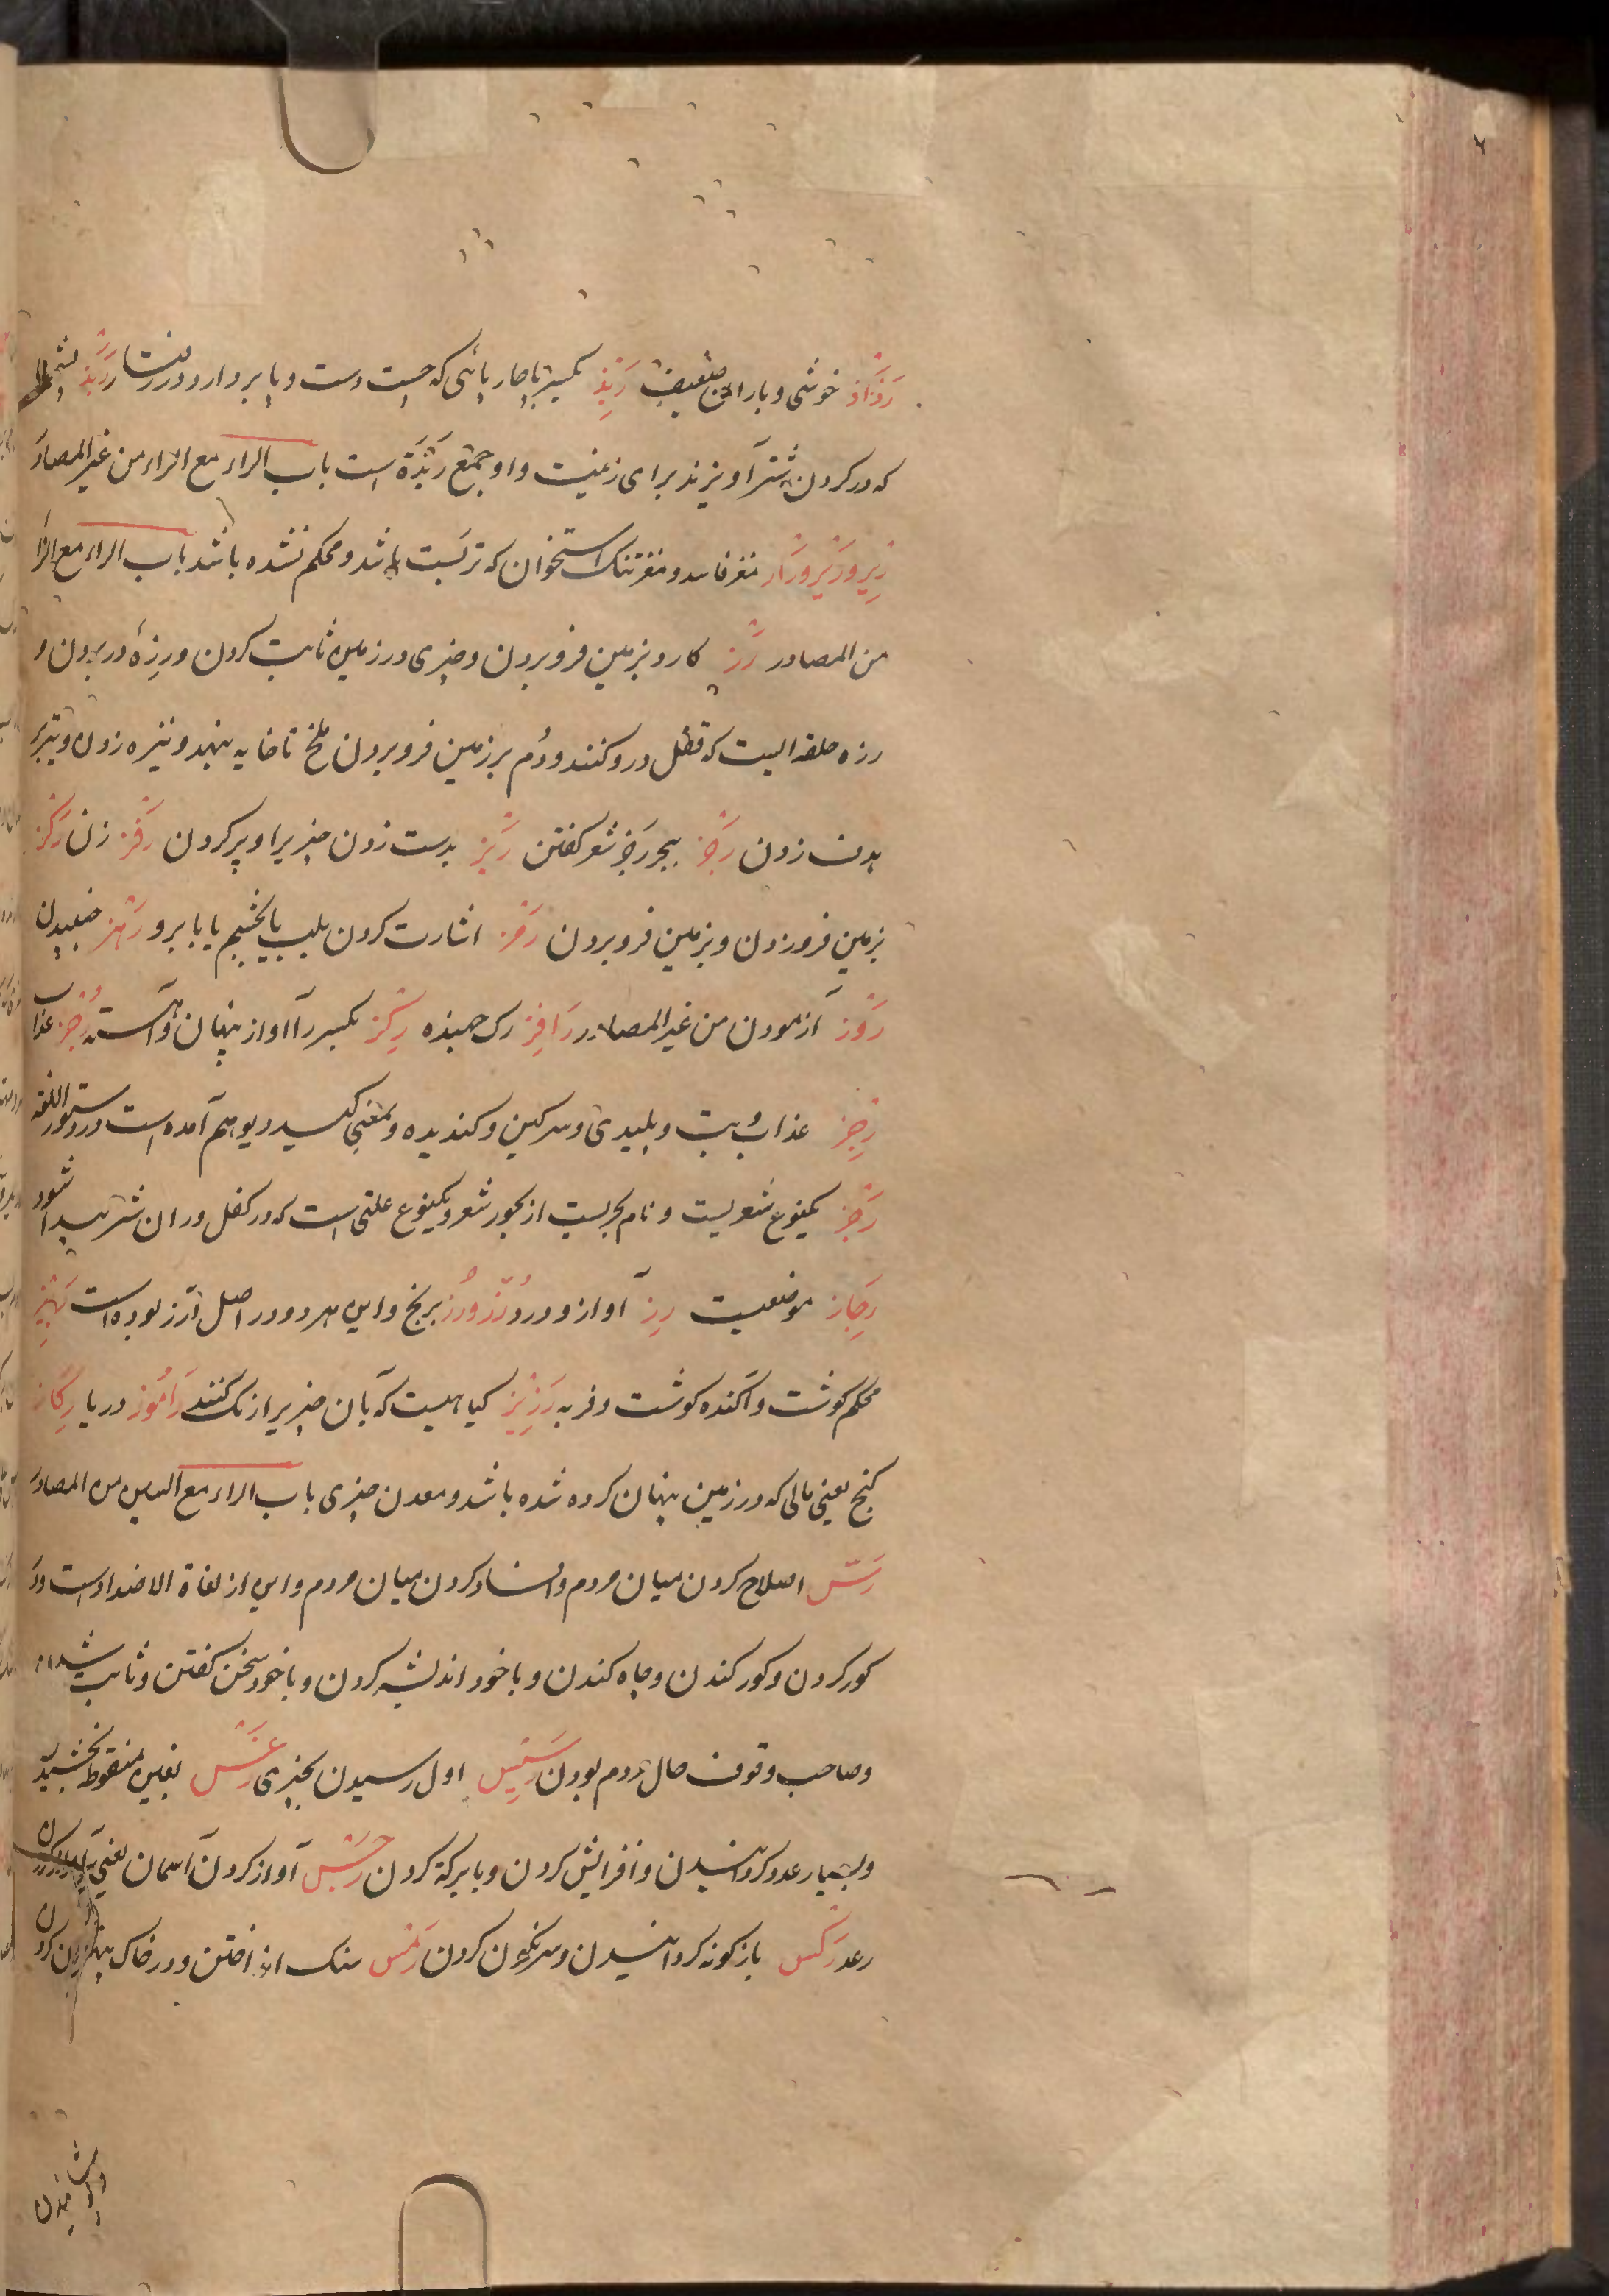 رَذَاذ خوشی و باران ضعیف رَبِذ بکسر با چارپائی که چست دست و پا بردارد و در رفتار رَبَذ پشم
که در کردن شتر آویزند برای زینت و او جمع رَبَذَة است باب الراء مع الراء من غیر المصادر
رِیر و رَیر و رَار مغز فاسد و مغز تنک استخوان که تر بست باشد و محکم نشده باشد باب الراء مع الزا
من المصادر رَز کارد بزمین فرو بردن و چیزی در زمین ثابت کردن و رزهٔ در بردن و
رزه حلقه ایست که قفل درو کنند و دُم بر زمین فرو بردن ملخ تا خایه بنهد و نیزه زدن و تیر بر
بدن زدن رَجز ببحر رجز شعر کفتن رَبز بدست زدن چیزیرا و پر کردن رَفز زدن رَکز
بزمین فرو زدن و بزمین فرو بردن رَمز اشارت کردن بلب یا بچشم یا بابرو رَهز جنبیدن
رَوز آزمودن من غیر المصادر رَافِز رک جهنده رِکز بکسر را آواز پنهان و آهسته رُجز عذاب
رِجز عذاب و بت و پلیدی و سرکین و کندیده و بمعنی کید دیو هم آمده است در دستور اللغه
رَجَز یکنوع شعریست و نام بحریست از بحور شعر و یکنوع علتی است که در کفل و ران شتر پیدا شود
رِجَاز موضعیست رِز آواز و درد رُزّ و رُنز برنج و این هر دو در اصل ارز بوده است رَبِیز
محکم کوشت و آکنده کوشت و فربه رَزِیز کیاهیست که بآن چیزیرا رنک کنند رَامُوز دریا رِکَاز
کنج یعنی مالی که در زمین پنهان کرده شده باشد و معدن چیزی باب الراء مع السین من المصادر
رَسّ اصلاح کردن میان مردم و افساد کردن میان مردم و این از لغاة الاضداد است و در
کور کردن و کور کندن و چاه کندن و با خود اندیشه کردن و با خود سخن کفتن و ثابت شدن
و صاحب وقوف حال مردم بودن رَسِیس اول رسیدن بچیزی رَغس بغین منقوط بخشیدن
و بسیار عدد کردانیدن و افزایش کردن و با برکة کردن رَجس آواز کردن آسمان یعنی
رعد رَکس بازکونه کردانیدن و سرنکون کردن رَمس سنک انداختن و در خاک پنهان کردن